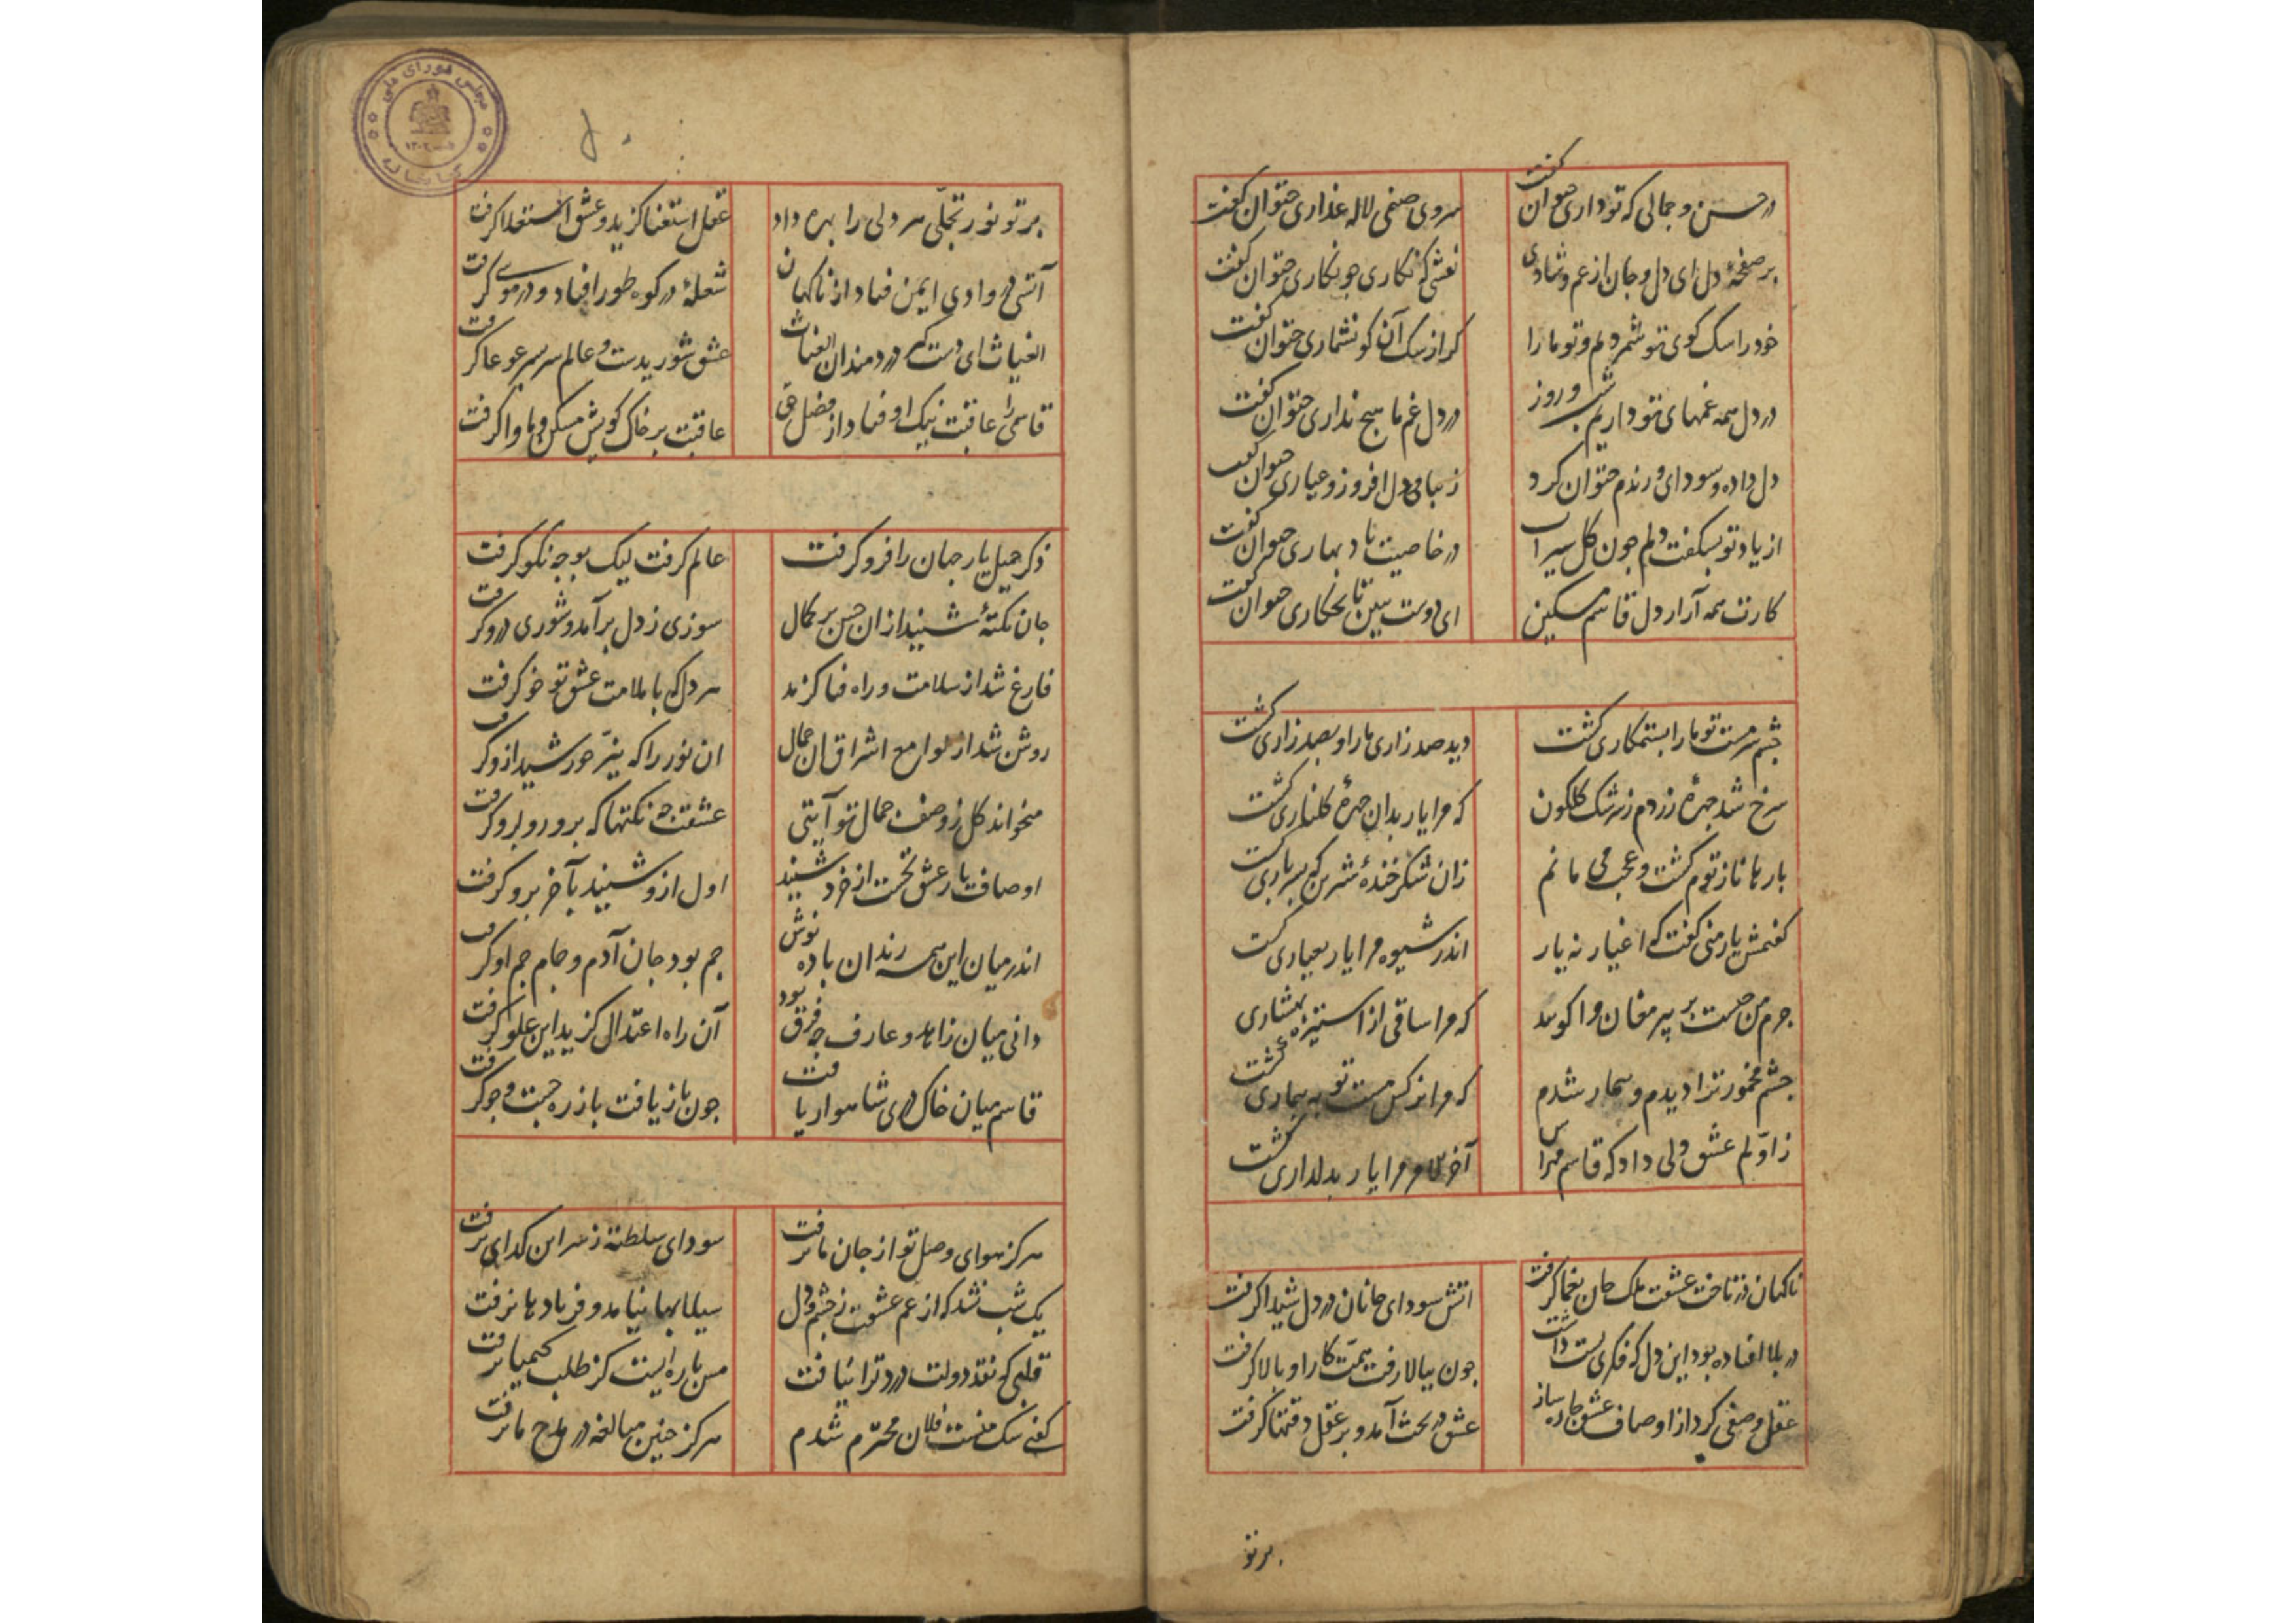 در حسن و جمالی که تو داری چتوان گفت
سروی صنمی لاله عذاری چتوان گفت
بر صفحهٔ دل ای دل و جان از غم و شادی
نقشی که نگاری چو نگاری چتوان گفت
خود را سک کوی تو شمردیم و تو ما را
کر از سک آن کو نشماری چتوان گفت
در دل همه غمهای تو داریم شب و روز
در دل غم ما هیچ نداری چتوان گفت
دل داده و سودای و رندم چتوان کرد
زیبا و دل افروز و عیاری چتوان گفت
از یاد تو بشکفت دلم چون کل سیراب
در خاصیت باد بهاری چتوان گفت
کارت همه آزار دل قاسم مسکین
ای دوست ببین تا بچکاری چتوان گفت
چشم سرمست تو ما را بستمکاری کشت
دید صد زاری ما را و بصد زاری کشت
سرخ شد چهرهٔ زردم ز سرشک کلکون
که مرا یار بدان چهرهٔ کلناری کشت
بارها ناز توم کشت و عجب می مانم
زان شکر خندهٔ شیرین که بسرباری کشت
کفتمش یار منی کفت که اغیار نه یار
اندر شیوه مرا یار بعیاری کشت
جرم من چیست بر پیر مغان واکویید
که مرا ساقی از استیزه هشیاری کشت
چشم مخمور ترا دیدم و بیمار شدم
که مرا نرکس مست تو به بیماری کشت
ز اولم عشق ولی داد که قاسم مهراس
آخر الامر مرا یار بدلداری کشت
ناکهان در تاخت عشقت ملک جان یغما کرفت
اتش سودای جانان در دل شیدا کرفت
در بلا افتاده بود این دل که فکری پست داشت
چون ببالا رفت همت کار او بالا کرفت
عقل وصفی کرد از اوصاف عشق چاره ساز
عشق در بحث آمد و بر عقل دقتها کرفت
برتو
پرتو نور تجلی هر دلی را بهره داد
عقل استغنا کزید و عشق استعلا کرفت
آتشی در وادی ایمن فتاد از ناکهان
شعلهٔ در کوه طور افتاد و در موسی کرفت
الغیاث ای دست کیر دردمندان الغیاث
عشق شوریدست و عالم سر بسر غوغا کرفت
قاسمی را عاقبت نیک اوفتاد از فضل حق
عاقبت بر خاک کویش مسکن و ماوا کرفت
ذکر جمیل یار جهان را فرو کرفت
عالم کرفت لیک بوجه نکو کرفت
جان نکتهٔ شنید از ان حسن بر کمال
سوزی ز دل برآمد و شوری درو کرفت
فارغ شد از سلامت و راه فنا کزید
هر دل که با ملامت عشق تو خو کرفت
روشن شد از لوامع اشراق ان جمال
ان نور را که نیر خورشید ازو کرفت
میخواند کل ز وصف جمال تو آیتی
عشقت چه نکتها که برو رو برو کرفت
اوصاف یار عشق نخست از خرد شنید
اول ازو شنید بآخر برو کرفت
اندر میان این همه رندان باده نوش
جم بود جان آدم و جام جم او کرفت
دانی میان زاهد و عارف چه فرق بود
آن راه اعتدال کزید این غلو کرفت
قاسم میان خاک دری شاهوار یافت
چون باز یافت باز ره جست و جو کرفت
هرکز هوای وصل تو از جان ما نرفت
سودای سلطنة ز سر این کدای نرفت
یک شب نشد که از غم عشقت ز چشم و دل
سیلابها نیامد و فریادها نرفت
قلبی که نقد دولت درد ترا نیافت
مس پاره ایست کز طلب کیمیا نرفت
کفتی سک منست فلان محترم شدم
هرکز چنین مبالغه در مدح ما نرفت